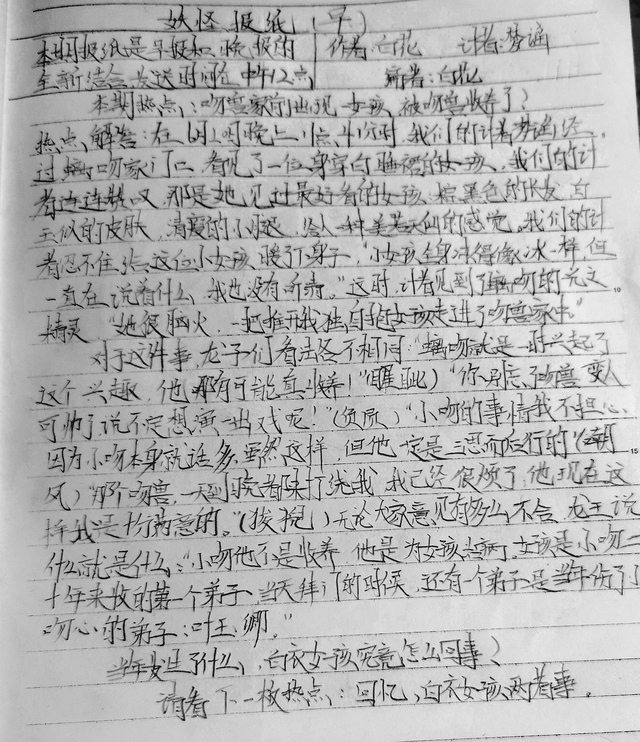 妖怪报纸（早）
本期报纸是早报和晚报的 作者：白花 计者：梦谣
全新结合发送时间在中午12点 编者：白花
本期热点：吻兽家前出现一女孩，被吻兽收养了？
热点解答：在6月1时晚上11点 我们的计者梦谣经
过螭吻家门口，看见了一位身穿白睡裙的女孩，我们的计
者连连赞叹 那是她见过最好看的女孩，棕黑色的长发 白
玉似的皮肤，清爱的小脸，给人一种美若天仙的感觉。我们的计
者忍不住 这位小女孩，暖了下身子，“小女孩全身冰得像冰一样，但
一直在说着什么，我也没有听清。”这时，计者见到了螭吻的元文
精灵 “她很脑火，一把推开我独自抱女孩走进了吻兽家中。”
对于这件事，龙子们看法各不相同：“螭吻就是一时兴起了
这个兴趣，他哪有可能真收养！”（睚眦）“你别忘了吻兽变人
可帅了说不定想演一出戏呢！”（负质）“小吻的事情我不担心，
因为小吻本身就谁多，虽然这样，但他一定是三思而后行的”（嘲
风）“那个吻兽，一天到晚都来打绕我，我已经很烦了，他现在这
样我是十份满意的。”（狻猊）无论大家意见有多么不合，龙王说
什么就是什么：“小吻他不是收养，他是为女孩 病，女孩是小吻二
十年来收的第一个弟子，当天拜门的时候，还有一个弟子是当年伤了小
吻心的弟子：叶玉卿。”
当年发生了什么，白衣女孩究竟怎么回事？
请看下一枚热点：回忆，白衣女孩两着事。